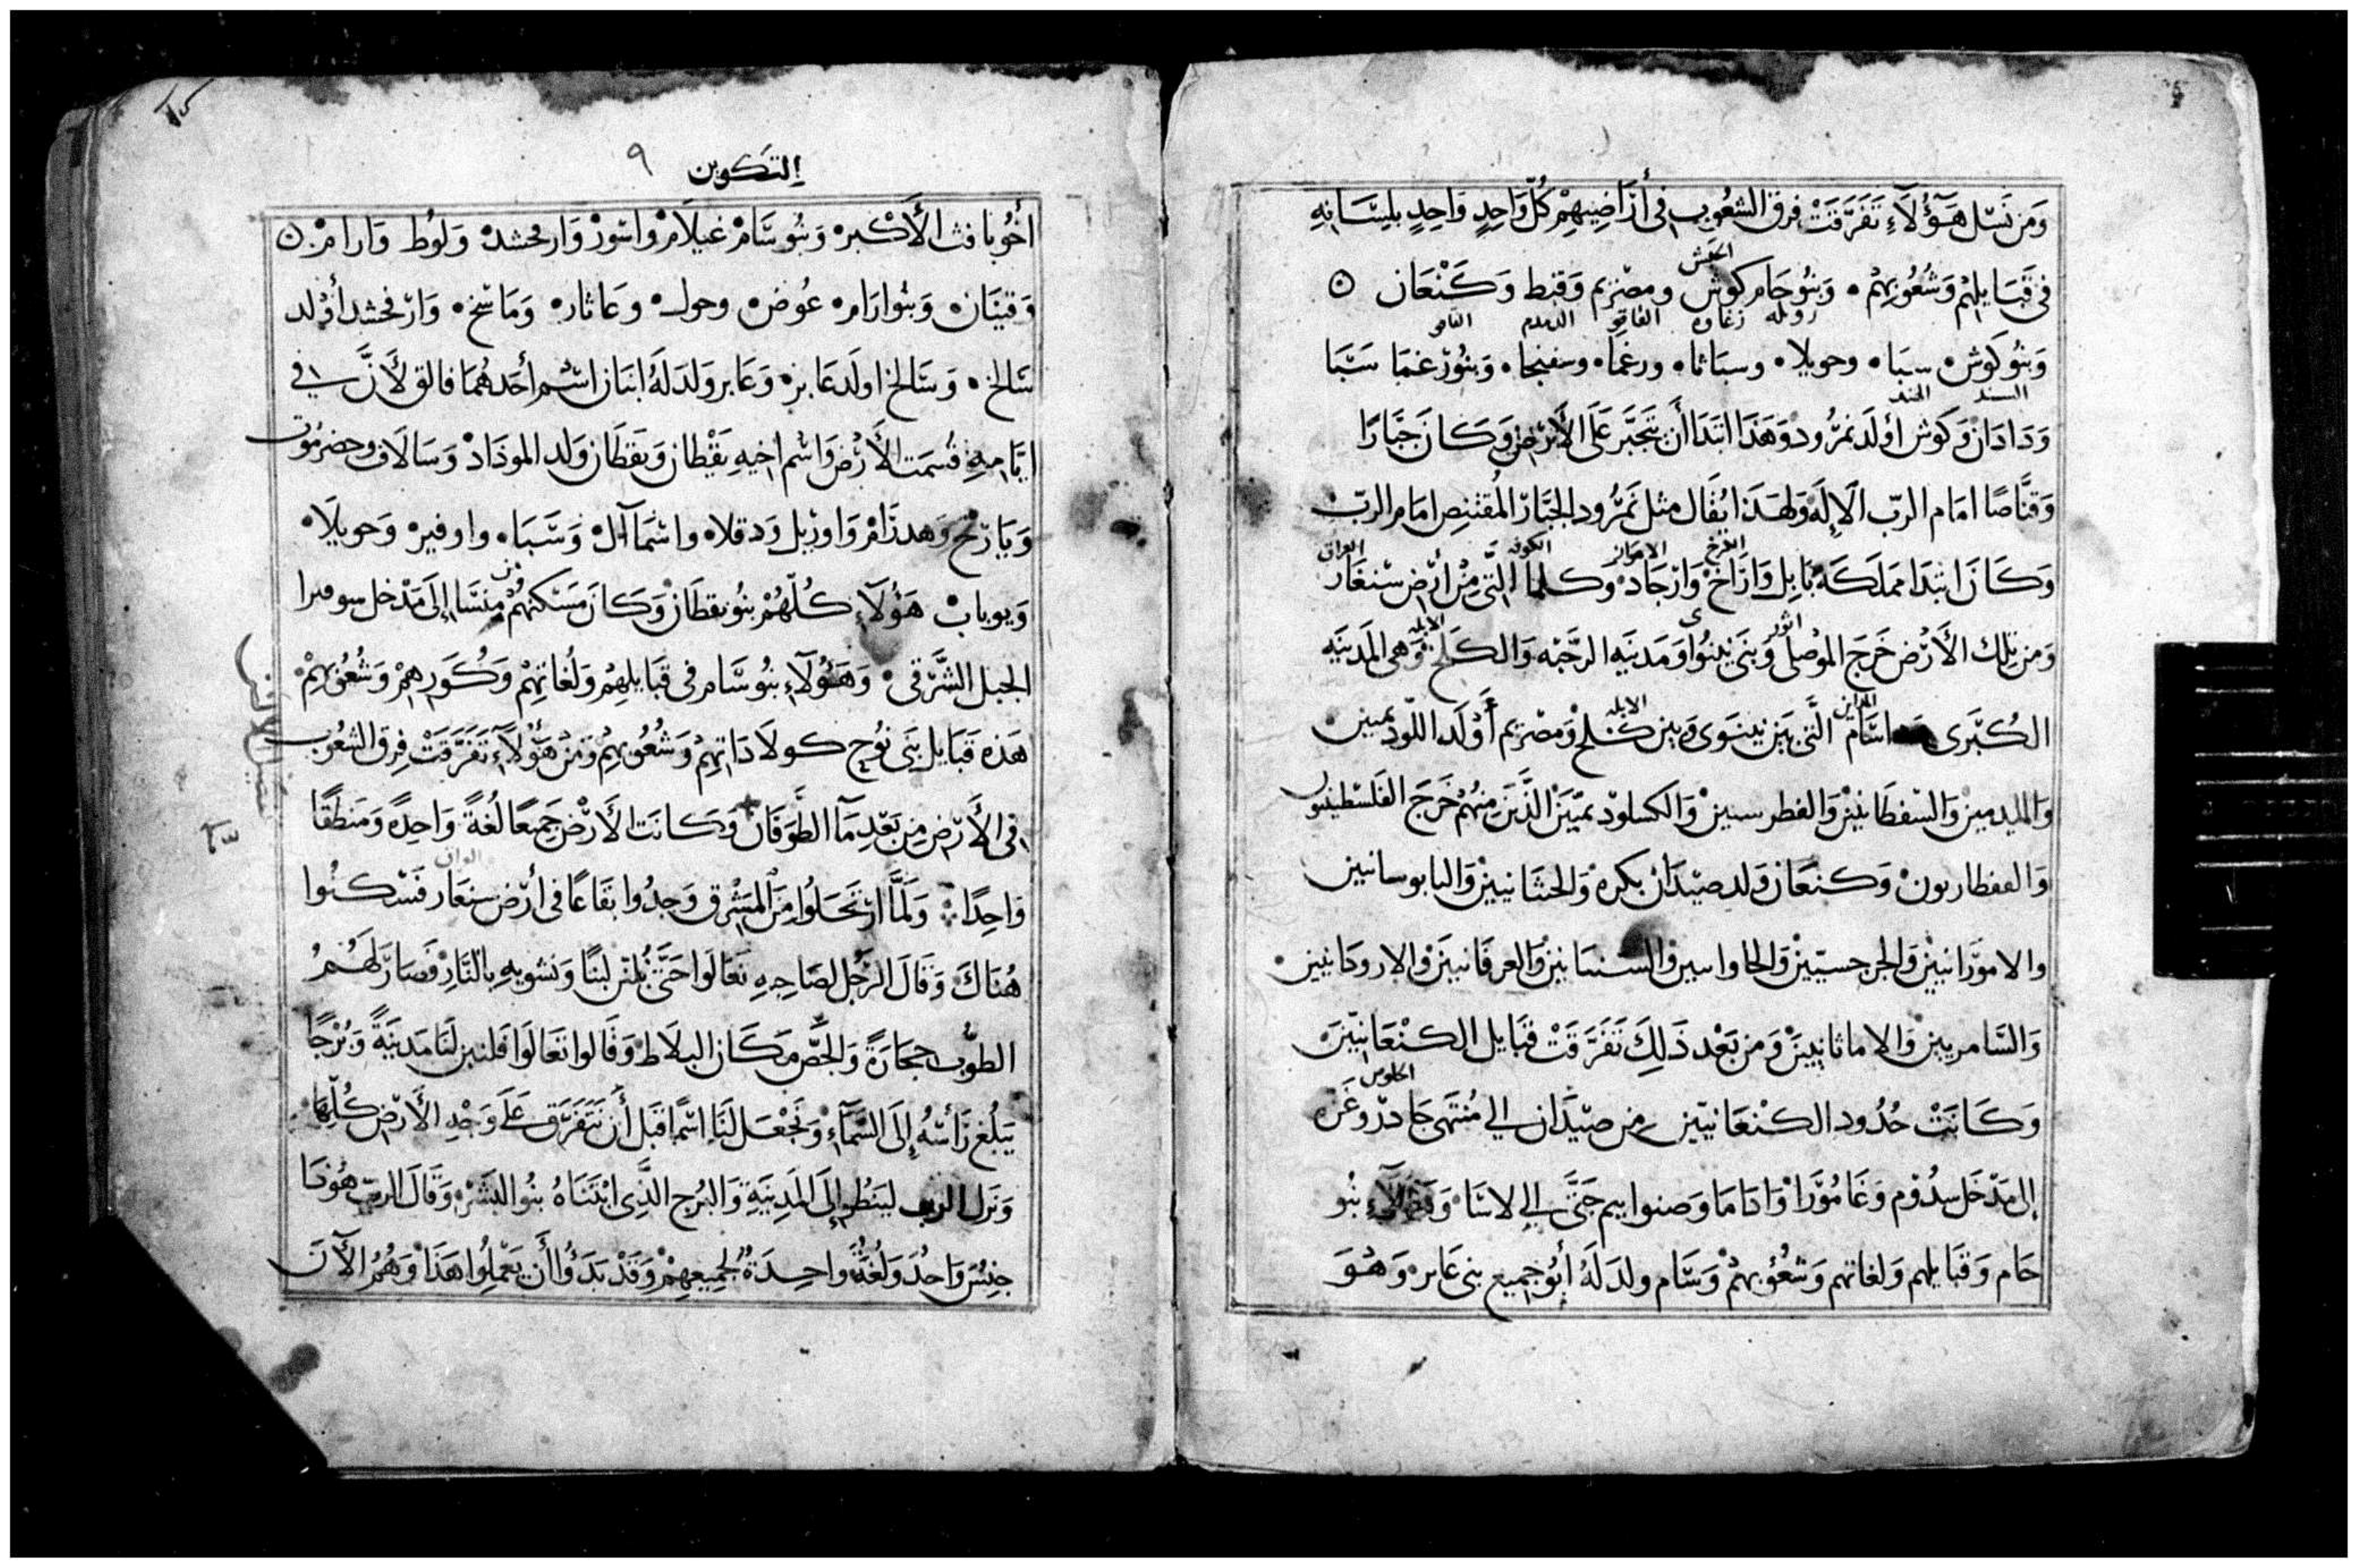 وَمِن نَسْل هَؤُلَاءِ تَفَرَّقَتْ فِرق الشعُوب فى أَرَاضِيهِمْ كُلّ وَاحِدٍ وَاحِدٍ بلِسَانِهِ
الحبش
فى قَبَايلِهِمْ وَشُعُوبِهِمْ وَبَنُو حَام كوش ومصْرِيم وَقبط وَكَنْعَان
زغاوه
وَبَنُو كَوش سبَا وحويلا وسبَاثا ورغمَا وسفنجا وَبَنُو رْغمَا سَبَا
السند الهند
وَدَادَان وَكَوش أولَد نمرُود وَهَذَا ابتَدَا أَن يَتَجَبَّر عَلَى الأَرْض وَكَانَ جَبَّارًا
وَقَنَّاصًا امَام الربّ الَالِه وَلهَذَا يُقَال مثل نَمرُود الجَبَّار المُقتنِص امَام الربّ
الكوفه العراق
وَكَانَ ابتدَا مَملَكَته بَابِل وَارَاخ وَارْجَاد وكلما التى مِنْ أرْض سنغَار
اثور الابله
وَمن تِلك الأَرْض خَرَجَ الموْصل وَبَنَى نِينوَا وَمَدينَه الرحَبَه وَالكَلَخ وَهى المَدينَه
المداين الابله
الكُبْرَى اسَام الَّتى بَين نِينَوى وَبين كَلخ وَمصْريم أَوْلَد اللّوديمين
والفطرسين وَالكسلوديميّين الَّذين مِنهُمْ خَرَجَ الفَلسْطِينيون
وَكنعَان وَلد صيْدَان بكره وَالحثانيين وَاليابوسانيين
والامورَانيين وَالجرجسيّين وَالعرقانيين وَالاروَدَانيين
وَالسَّامريين وَالاماثانيين وَمن بَعْد ذَلِكَ تَفَرَّقَتْ قبَايل الكنْعَانيّين
وَكَانَتْ حُدُود الكنْعَانيّين من صيْدَان الي مُنتَهى جَادرْ وغَزّه
إلى مَدْخَل سدُوْم وَغَامُورَا وَادَامَا وَصنوايم حَتَّى الي لاسَا وَهَؤلَاءِ بنُو
حَام وَقبَايلهم وَلغاتهم وَشعُوبهمْ وَسَام ولدَ لَهُ أبُو جَميع بنى عَابر وَهُوَ
التكوين ٩
أخُو يافث الأَكْبر وَبنُو سَام عَيلَامْ وَاسوْرْ وَارفخشدْ وَلوُط وَارامْ
وَقينَان وَبنُو ارَام عُوض وحول وعَاثار وَمَاسخ وَارْفخشد أوْلد
سَالخ وَسَالخ اولَد عَابر وَعَابر وَلدَ لَهُ ابنَان اسْم أحَدهُمَا فالق لأَنَّ في
ايَّامِهِ قُسمَت الأَرْض وَاسْم اخيهِ يَقْطان وَيَقطَان وَلد الموذَادْ وَسَالَاف وحضرموت
وَيَارْح وَهدُرَامْ وَاوزيل وَدقلا واشمَاآل وَسَبَا واوفير وَحويلا
وَيوباب هَؤُلَاءِ كُلّهُمْ بنُو يقطَان وَكَانَ مَسْكنهُمْ مِن مَنسَّا إلَى مَدْخل سوفيرا
الجبل الشَّرْقى وَهَؤُلَاءِ بنُو سَام فى قبَايلِهِمْ وَلُغَاتهِمْ وَكُوَرِهِمْ وَشُعُوبِهِمْ
هَذِه قبَايل بَنى نوُح كولَادَاتهِمْ وَشُعُوبهِمْ وَمنْ هَؤُلَاءِ تَفَرَّقَتْ فِرق الشعُوب
فى الأَرْض مِن بَعْدِ مَا الطَّوفَان وَكَانَت الأَرْض جَميعًا لُغَةً وَاحِدةً وَمَنطَقًا
العراق
وَاحِدًا وَلَمَّا ارْتحَلوا مِنَ المَشْرِق وَجَدُوا بقَاعًا فى أَرْض سنعَار فَسَكنُوا
هُنَاكَ وَقَالَ الرَّجُل لصَاحِبِهِ تعَالَوا حَتَّى نُلبّن لَبنًا وَنشويه بالنَّارِ فصَارَ لَهُمُ
الطوُب حجَارَةً وَالجصّ مَكَان البلَاط وَقَالوا تعَالَوَا فلنبن لنَا مَدينَةً وَبُرْجًا
يَبلُغ رَأسُهُ إلَى السَّمَآءِ وَنجْعَل لَنَا اسْمًا قَبل أَن نتَفَرَّق عَلَى وَجْهِ الأَرْض كُلّها
وَنزَل الرب ليَنظُر إِلَى المَدينَةِ وَالبُرج الذَّى ابْتنَاهُ بنُوا البَشَرْ وَقَالَ الربّ هُوَذَا
جنْسَ وَاحُدَ وَلُغَةُ وَاحِدَةُ لجَمِيعِهِمْ وَقَدْ بَدَؤُا أَن يَعْمَلِوُا هَذَا وَهُمُ الآن